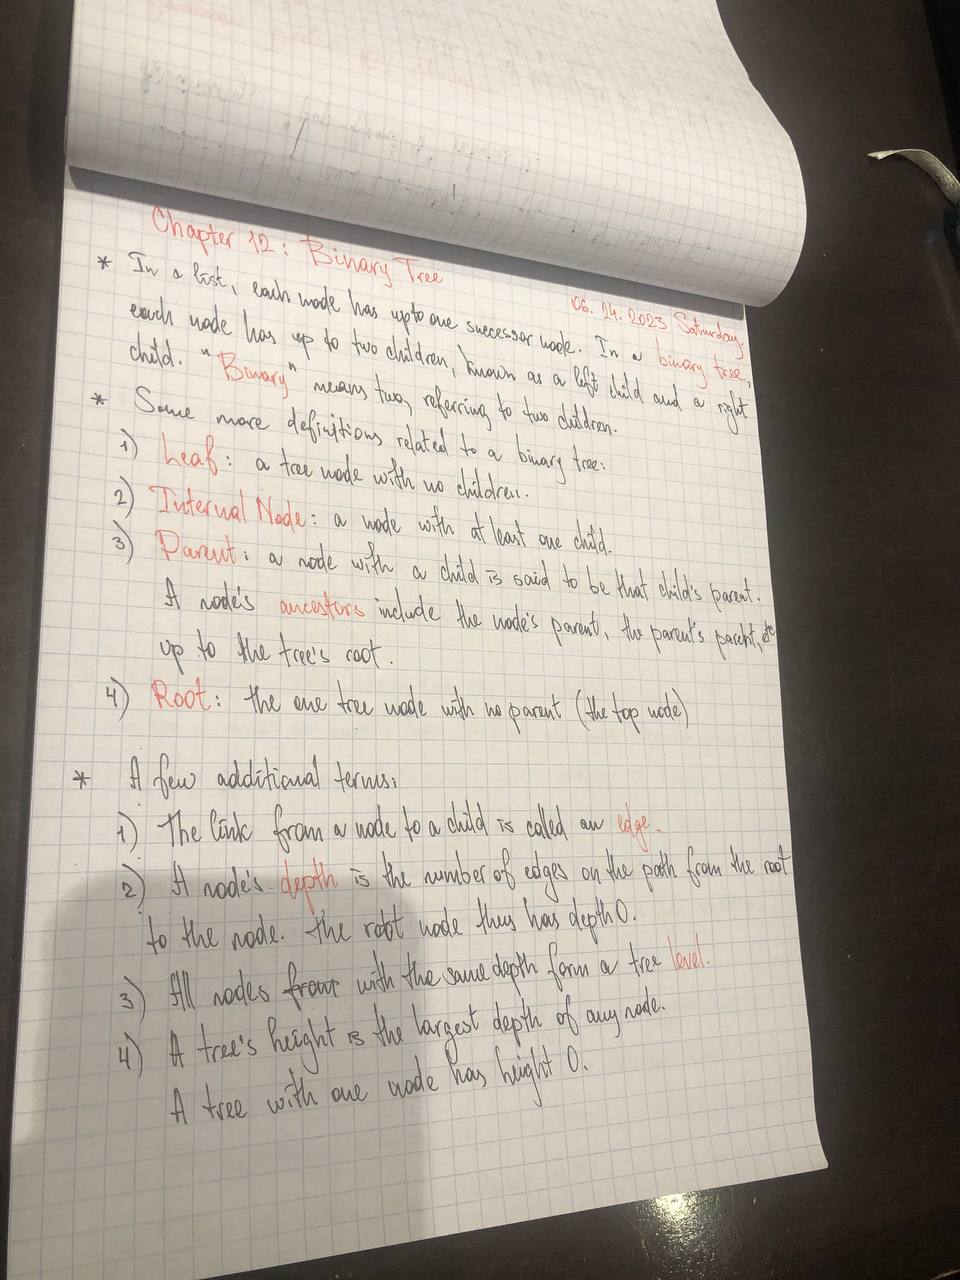 Chapter 12: Binary Tree
06. 24. 2023 Saturday.
* In a list, each node has upto one successor node. In a binary tree,
each node has up to two children, known as a left child and a right
child. "Binary" means two, referring to two children.
* Some more definitions related to a binary tree:
1) Leaf: a tree node with no children.
2) Internal Node: a node with at least one child.
3) Parent: a node with a child is said to be that child's parent.
A node's ancestors include the node's parent, the parent's parent, etc
up to the tree's root.
4) Root: the one tree node with no parent (the top node)
* A few additional terms:
1) The link from a node to a child is called an edge.
2) A node's depth is the number of edges on the path from the root
to the node. The root node thus has depth 0.
3) All nodes from with the same depth form a tree level.
4) A tree's height is the largest depth of any node.
A tree with one node has height 0.